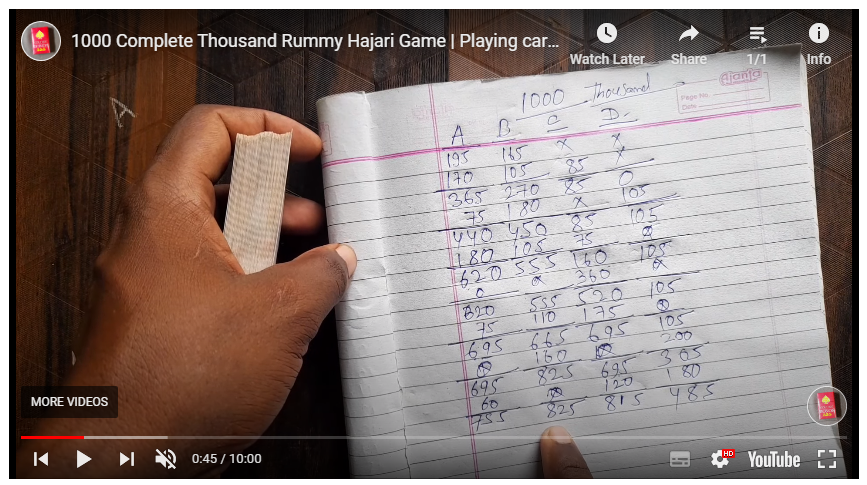 1000 Complete Thousand Rummy Hajari Game | Playing car...
Watch Later
Share
1/1
Info
Ajanta
Page No.
Date
1000 Thousand
A B C D
195 165 X X
170 105 85 X
365 270 85 0
75 180 X 105
440 450 85 105
180 105 75 0
620 555 160 105
0 0 360 0
620 555 520 105
75 110 175 0
695 665 695 105
0 160 0 200
695 825 695 305
60 0 120 180
755 825 815 485
MORE VIDEOS
0:45 / 10:00
HD
YouTube